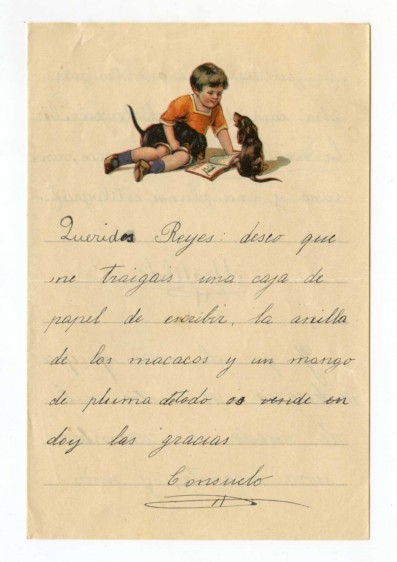 Queridos Reyes: deseo que
me traigais una caja de
papel de escribir, la anilla
de los macacos y un mango
de pluma
doy las gracias
Consuelo